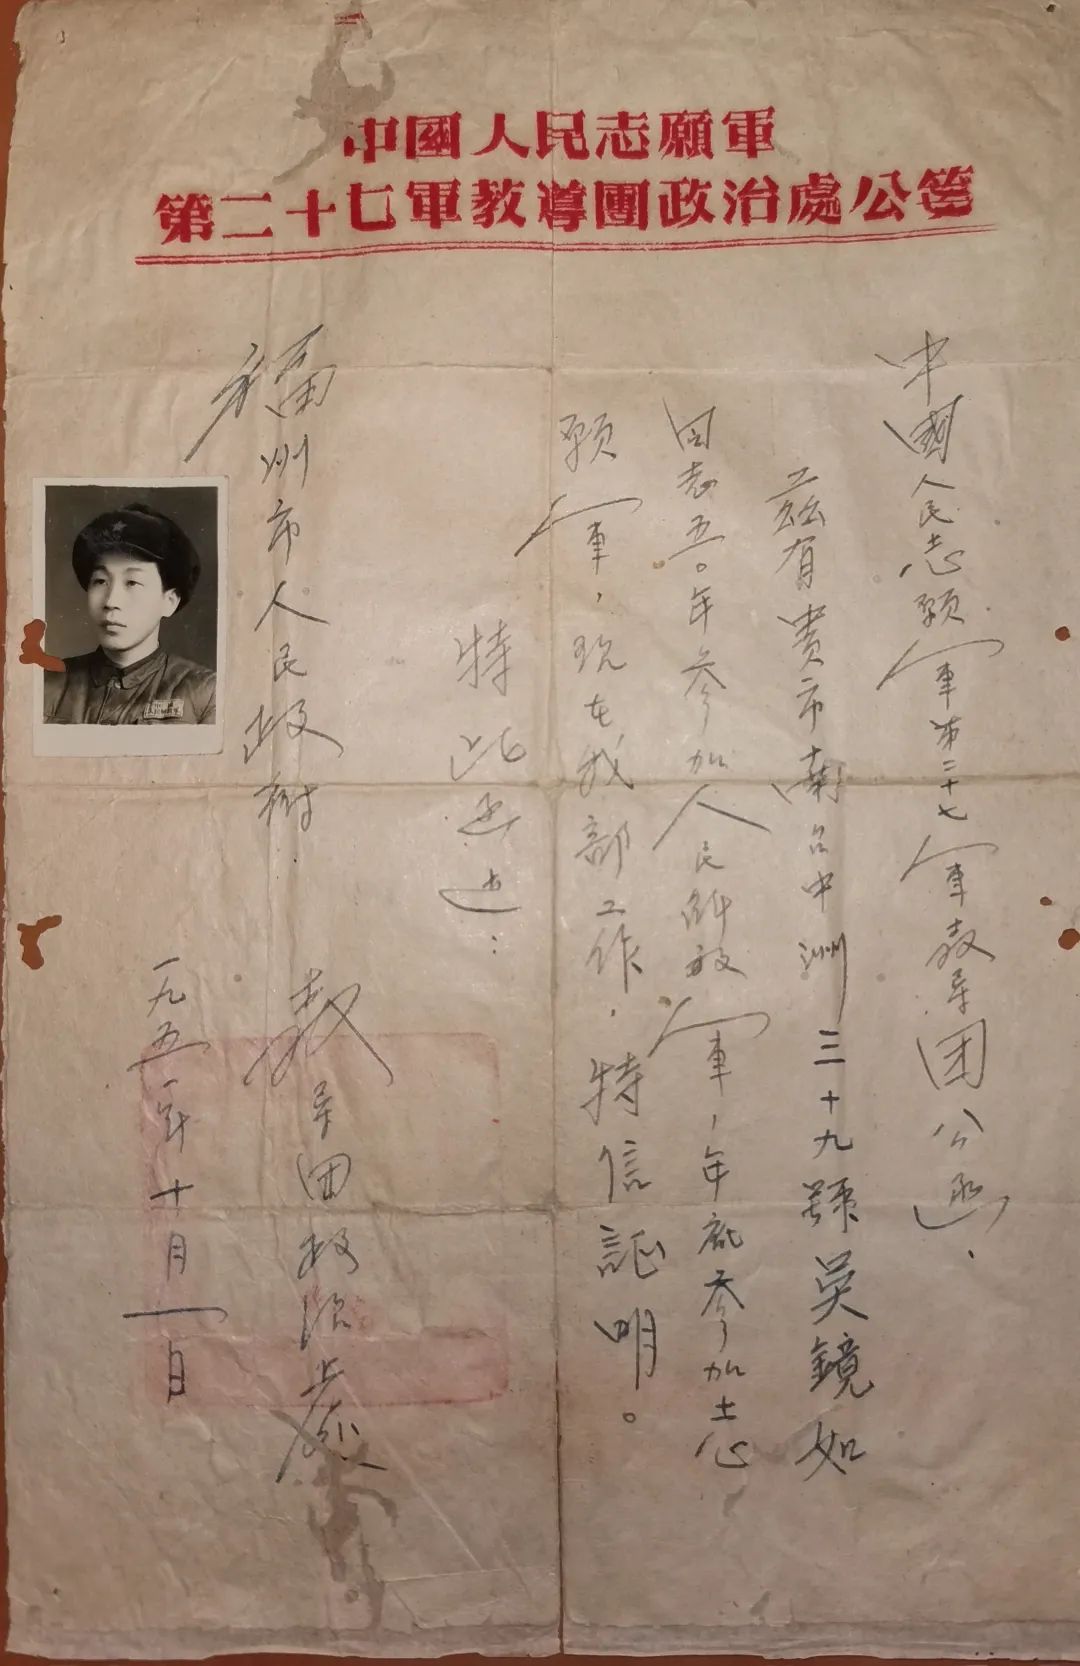 中國人民志願軍
第二十七軍教導團政治處公箋
中國人民志願軍第二十七軍教导团公函.
兹有貴市南台中洲三十九號吴鏡如
同志五〇年参加人民解放軍,年底参加志
願軍,現在我部工作.特信証明。
特此函达:
福州市人民政府
教导团政治處
一九五一年十月一日